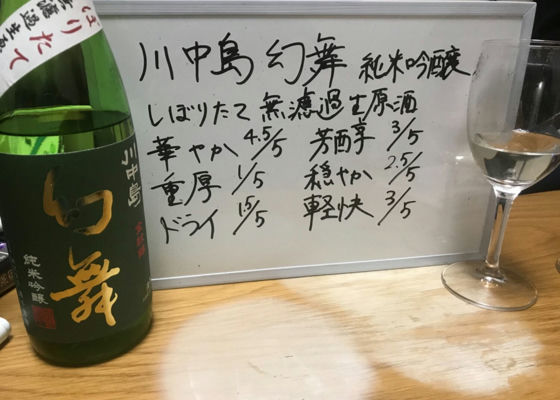 川中島 幻舞 純米吟醸
しぼりたて 無濾過生原酒
華やか 4.5/5 芳醇 3/5
重厚 1/5 穏やか 2.5/5
ドライ 1.5/5 軽快 3/5
ぼりたて
無濾過生原
川中島
幻舞
純米吟醸